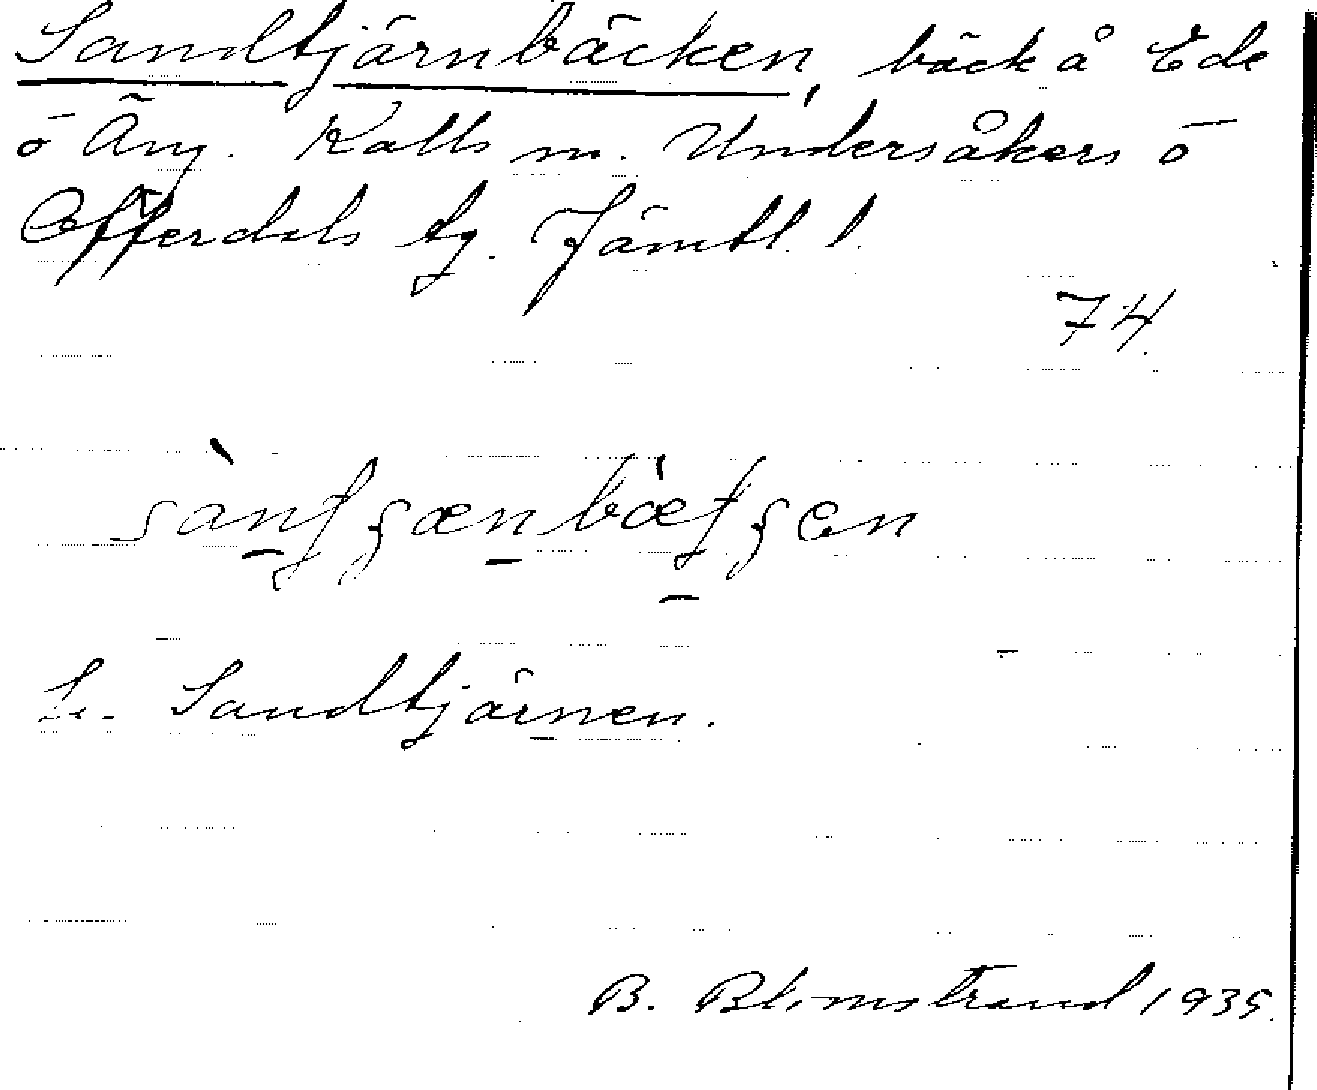 Sandtjärnbäcken, bäck å Ede
o Äng. Kalls sn. Undersåkers o
Offerdals tg. Jämtl. l.
74.
Se. Sandtjärnen.
B. Blomstrand 1935.